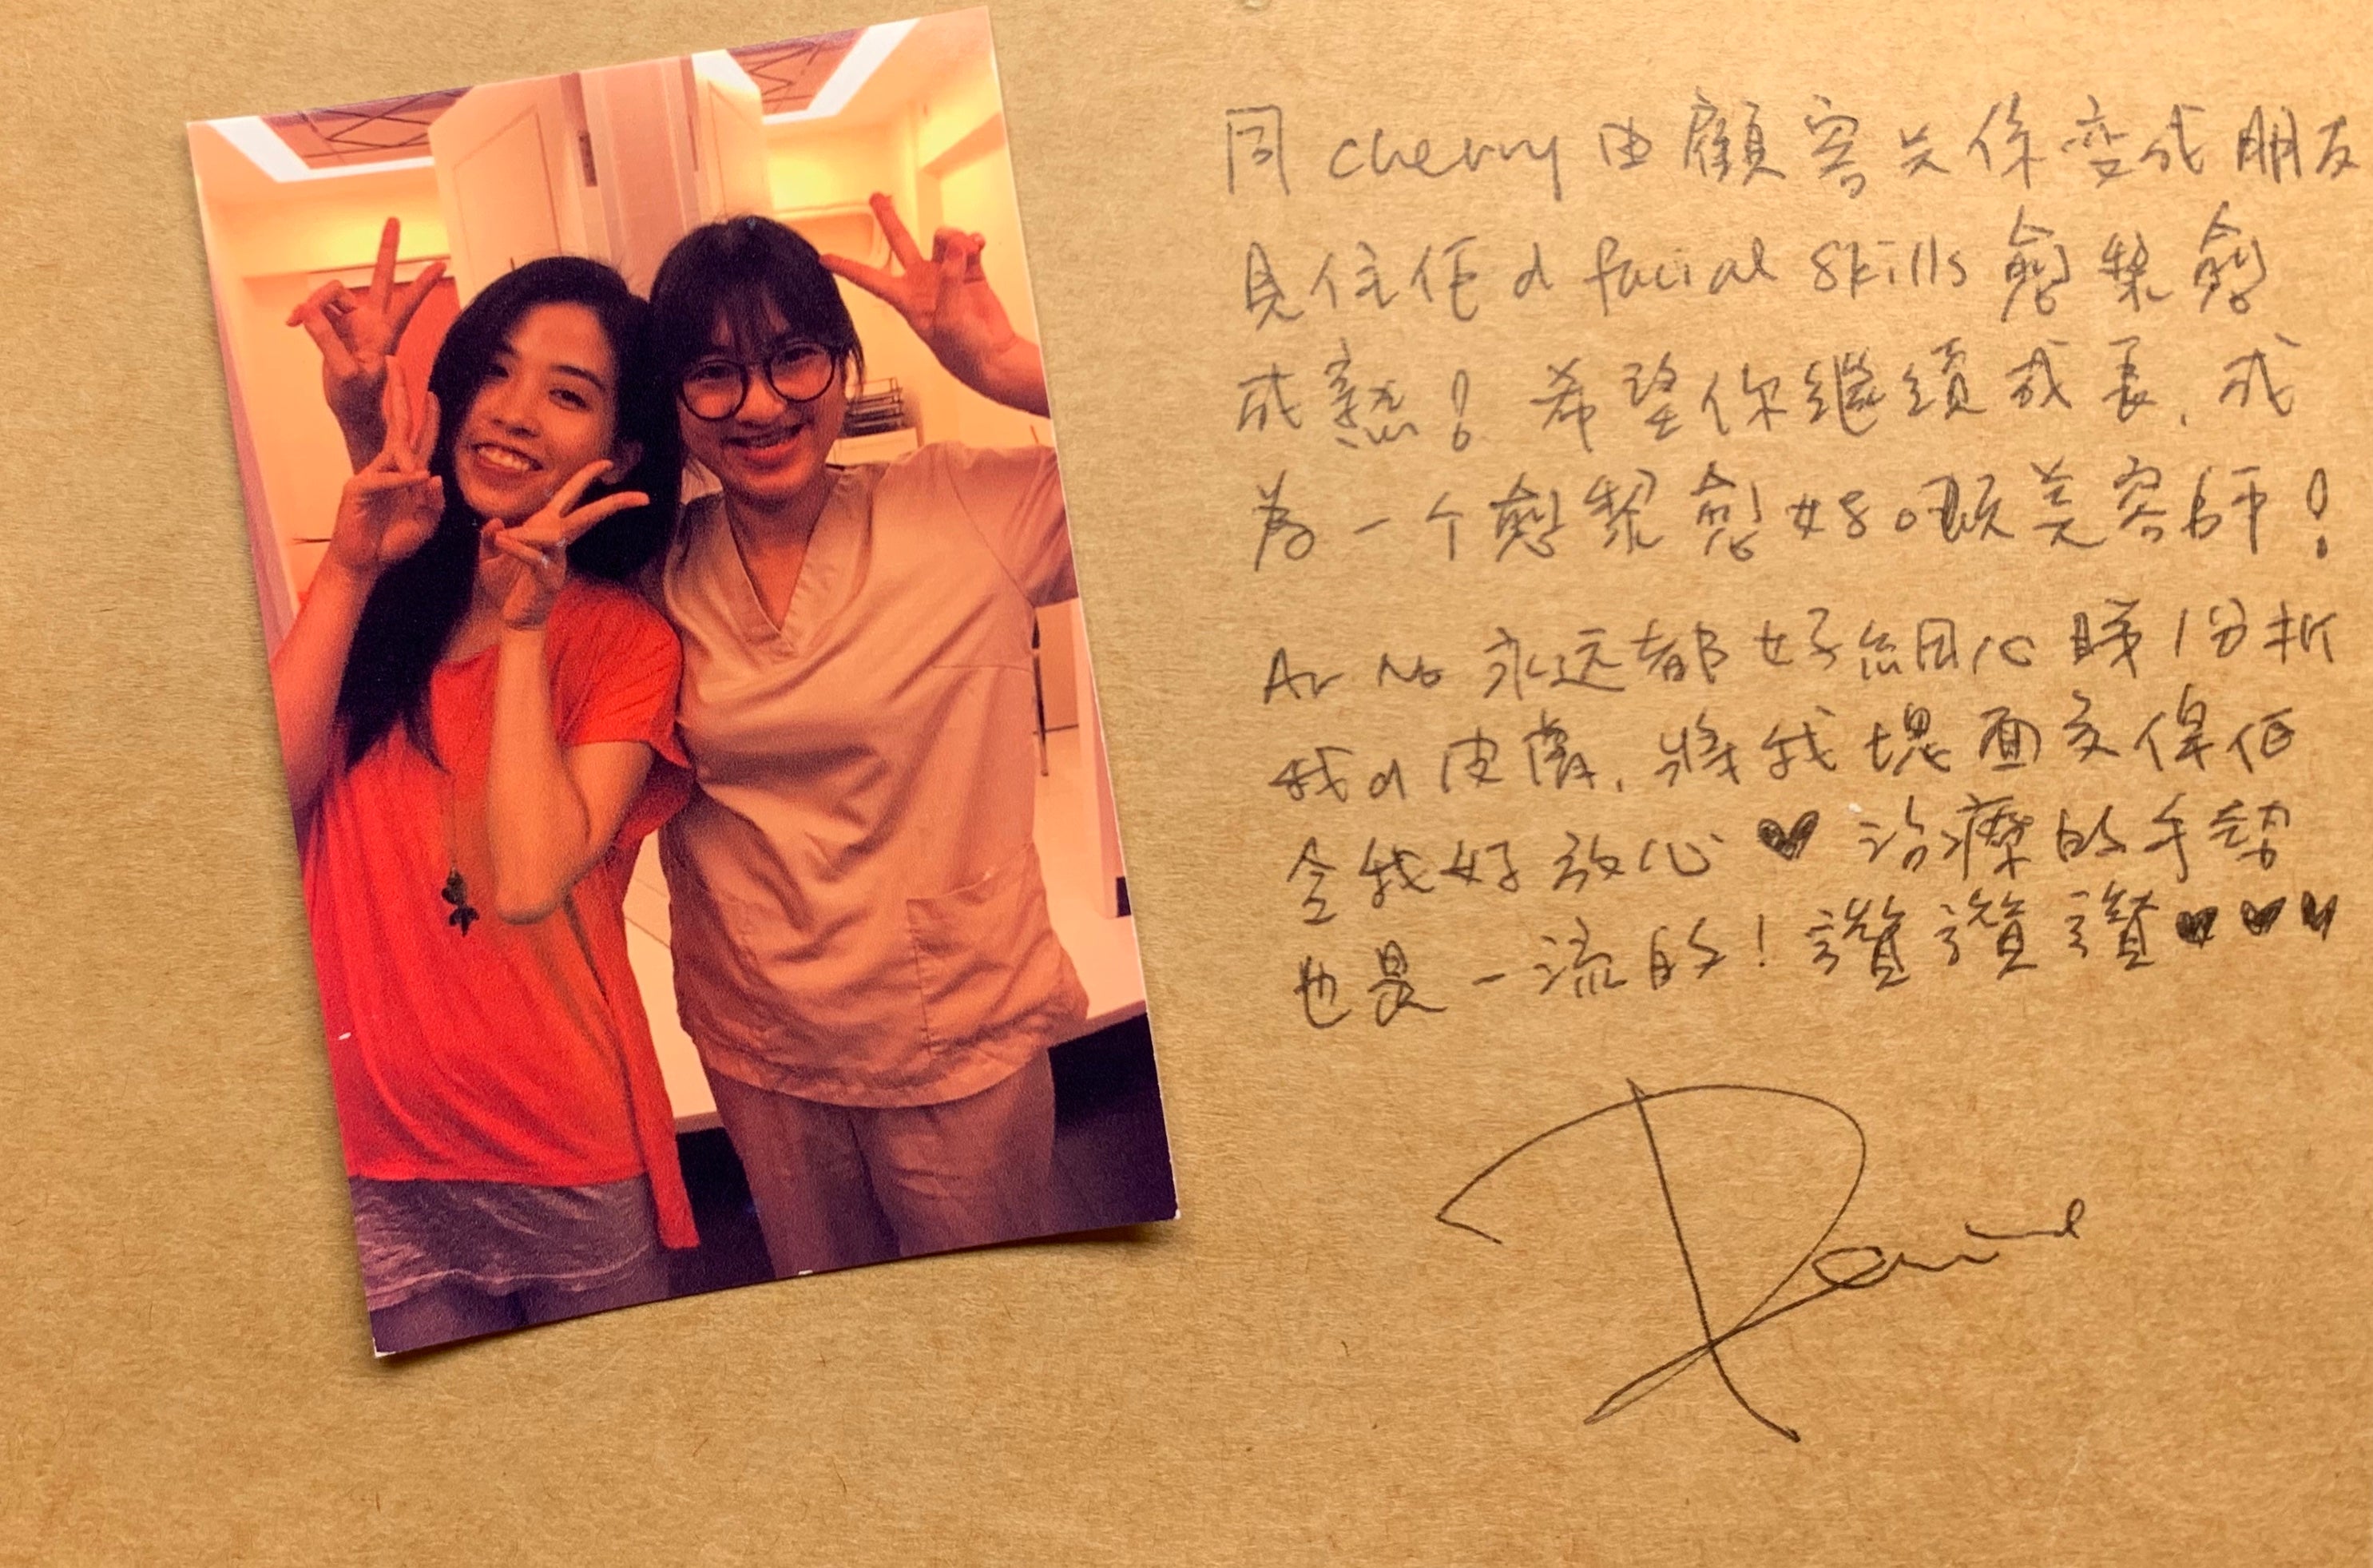 同 cherry 由顧客关係变成朋友
見住佢 d facial skills 愈黎愈
成熟! 希望你繼續成長, 成
為一个愈黎愈好嘅美容師!
Ar No 永远都好細心睇/分析
我 d 皮膚, 將我塊面交俾佢
令我好放心 ♥ 治療的手势
也是一流的! 讚讚讚 ♥ ♥ ♥